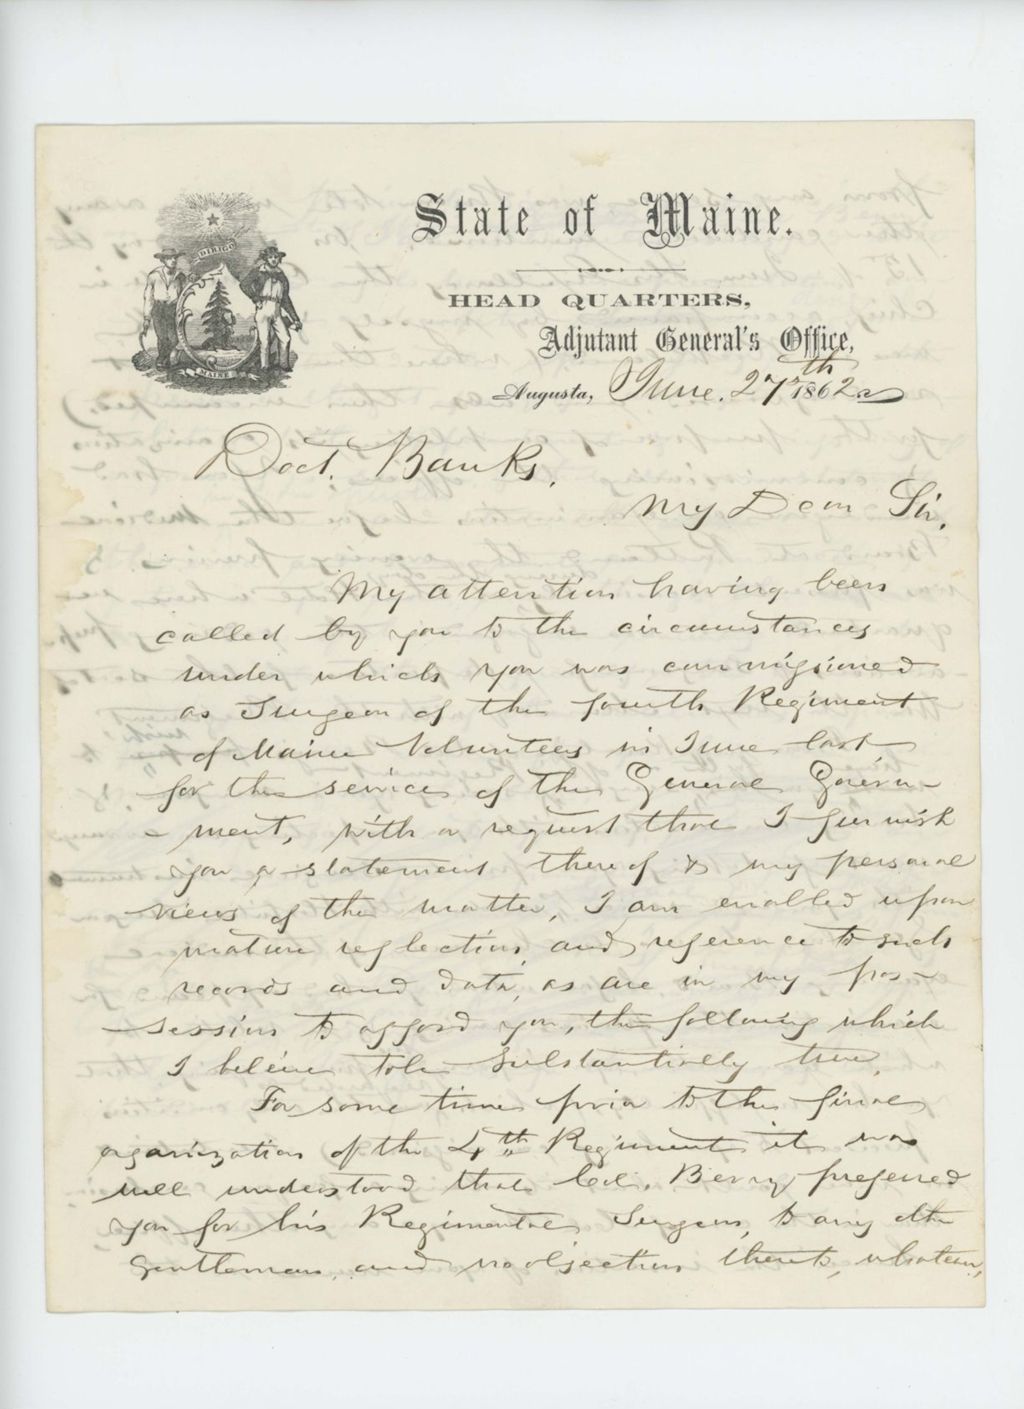 State of Maine.
HEAD QUARTERS,
Adjutant General's Office,
Augusta, June. 27th 1862
DIRIGO
MAINE
Doct. Banks.
My Dear Sir,
My attention having been
called by you to the circumstances
under which you was commissioned
as Surgeon of the fourth Regiment
of Maine Volunteers in June last
for the service of the General Govern-
-ment, with a request that I furnish
you a statement thereof & my personal
views of the matter, I am enabled upon
mature reflection, and reference to such
records and data, as are in my pos-
-session to afford you, the following which
I believe to be substantially true.
For some time prior to the final
organization of the 4th Regiment it was
well understood that Col. Berry preferred
you for his Regimental Surgeon, to any other
Gentleman, and no objection thereto, whatever,